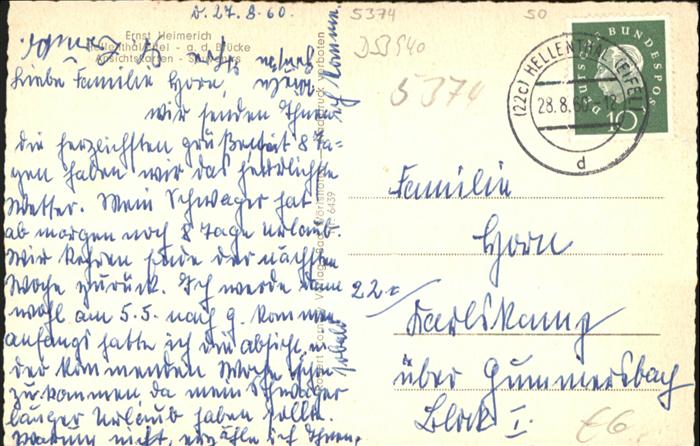 d. 27.8.60.
Ernst Heimerich
Hellenthal/Eifel - a. d. Brücke
Ansichtskarten - 
Liebe Familie Horn,
wir senden Ihnen
die herzlichsten Grüße, seit 8 Ta-
gen haben wir das herrlichste
Wetter. Mein Schwager hat
ab morgen noch 8 Tage Urlaub.
Wir kehren Ende der nächsten
Woche zurück. Ich werde dann
wohl am 5.5. nach g. kommen
anfangs hatte ich die Absicht, in
der kommenden Woche schon
zu kommen, da mein Schwager
länger Urlaub haben sollte.
Warum nicht, erzähle ich Ihnen,
sobald
ich komme.
Nachdruck verboten
6439
5374
50
DS3940
5374
DEUTSCHE BUNDESPOST
10
(22c) HELLENTHAL (EIFEL)
28.8.60.-12
d
Familie
Horn
22c
Karlskamp
über Gummersbach
Block I.
€6